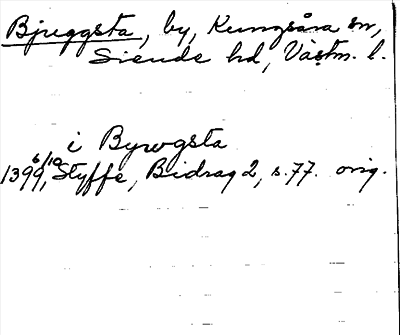 Bjuggsta, by, Kungsåra sn,
Siende hd, Västm. l.
i Bywgsta
1399 6/10, Styffe, Bidrag 2, s. 77. orig.